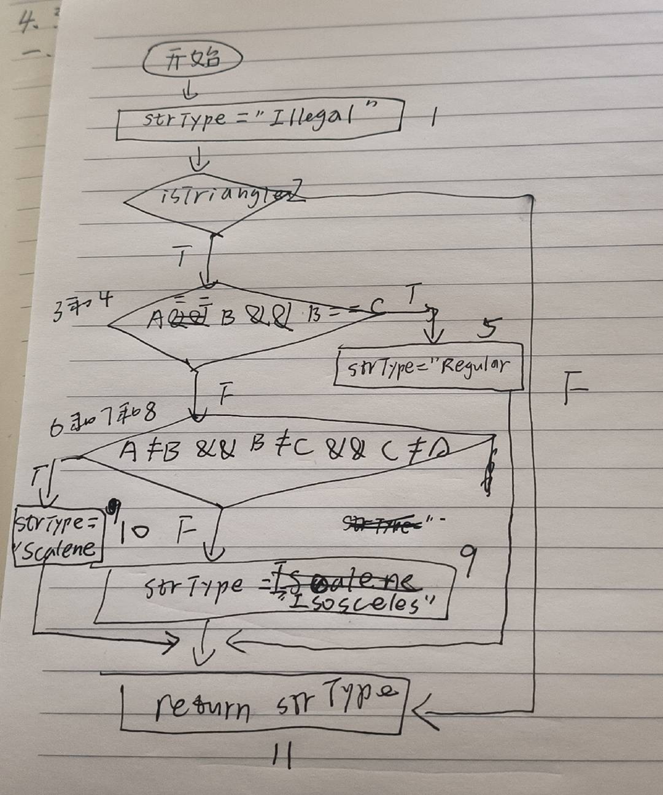 4.
一.
开始
strType = "Illegal" 1
isTriangle
T
3和4
A == B && B == C
T
5
strType="Regular
F
F
6和7和8
A ≠ B && B ≠ C && C ≠ A
T
strType=
"Scalene
10
F
9
strType =
"Isosceles"
return strType
11